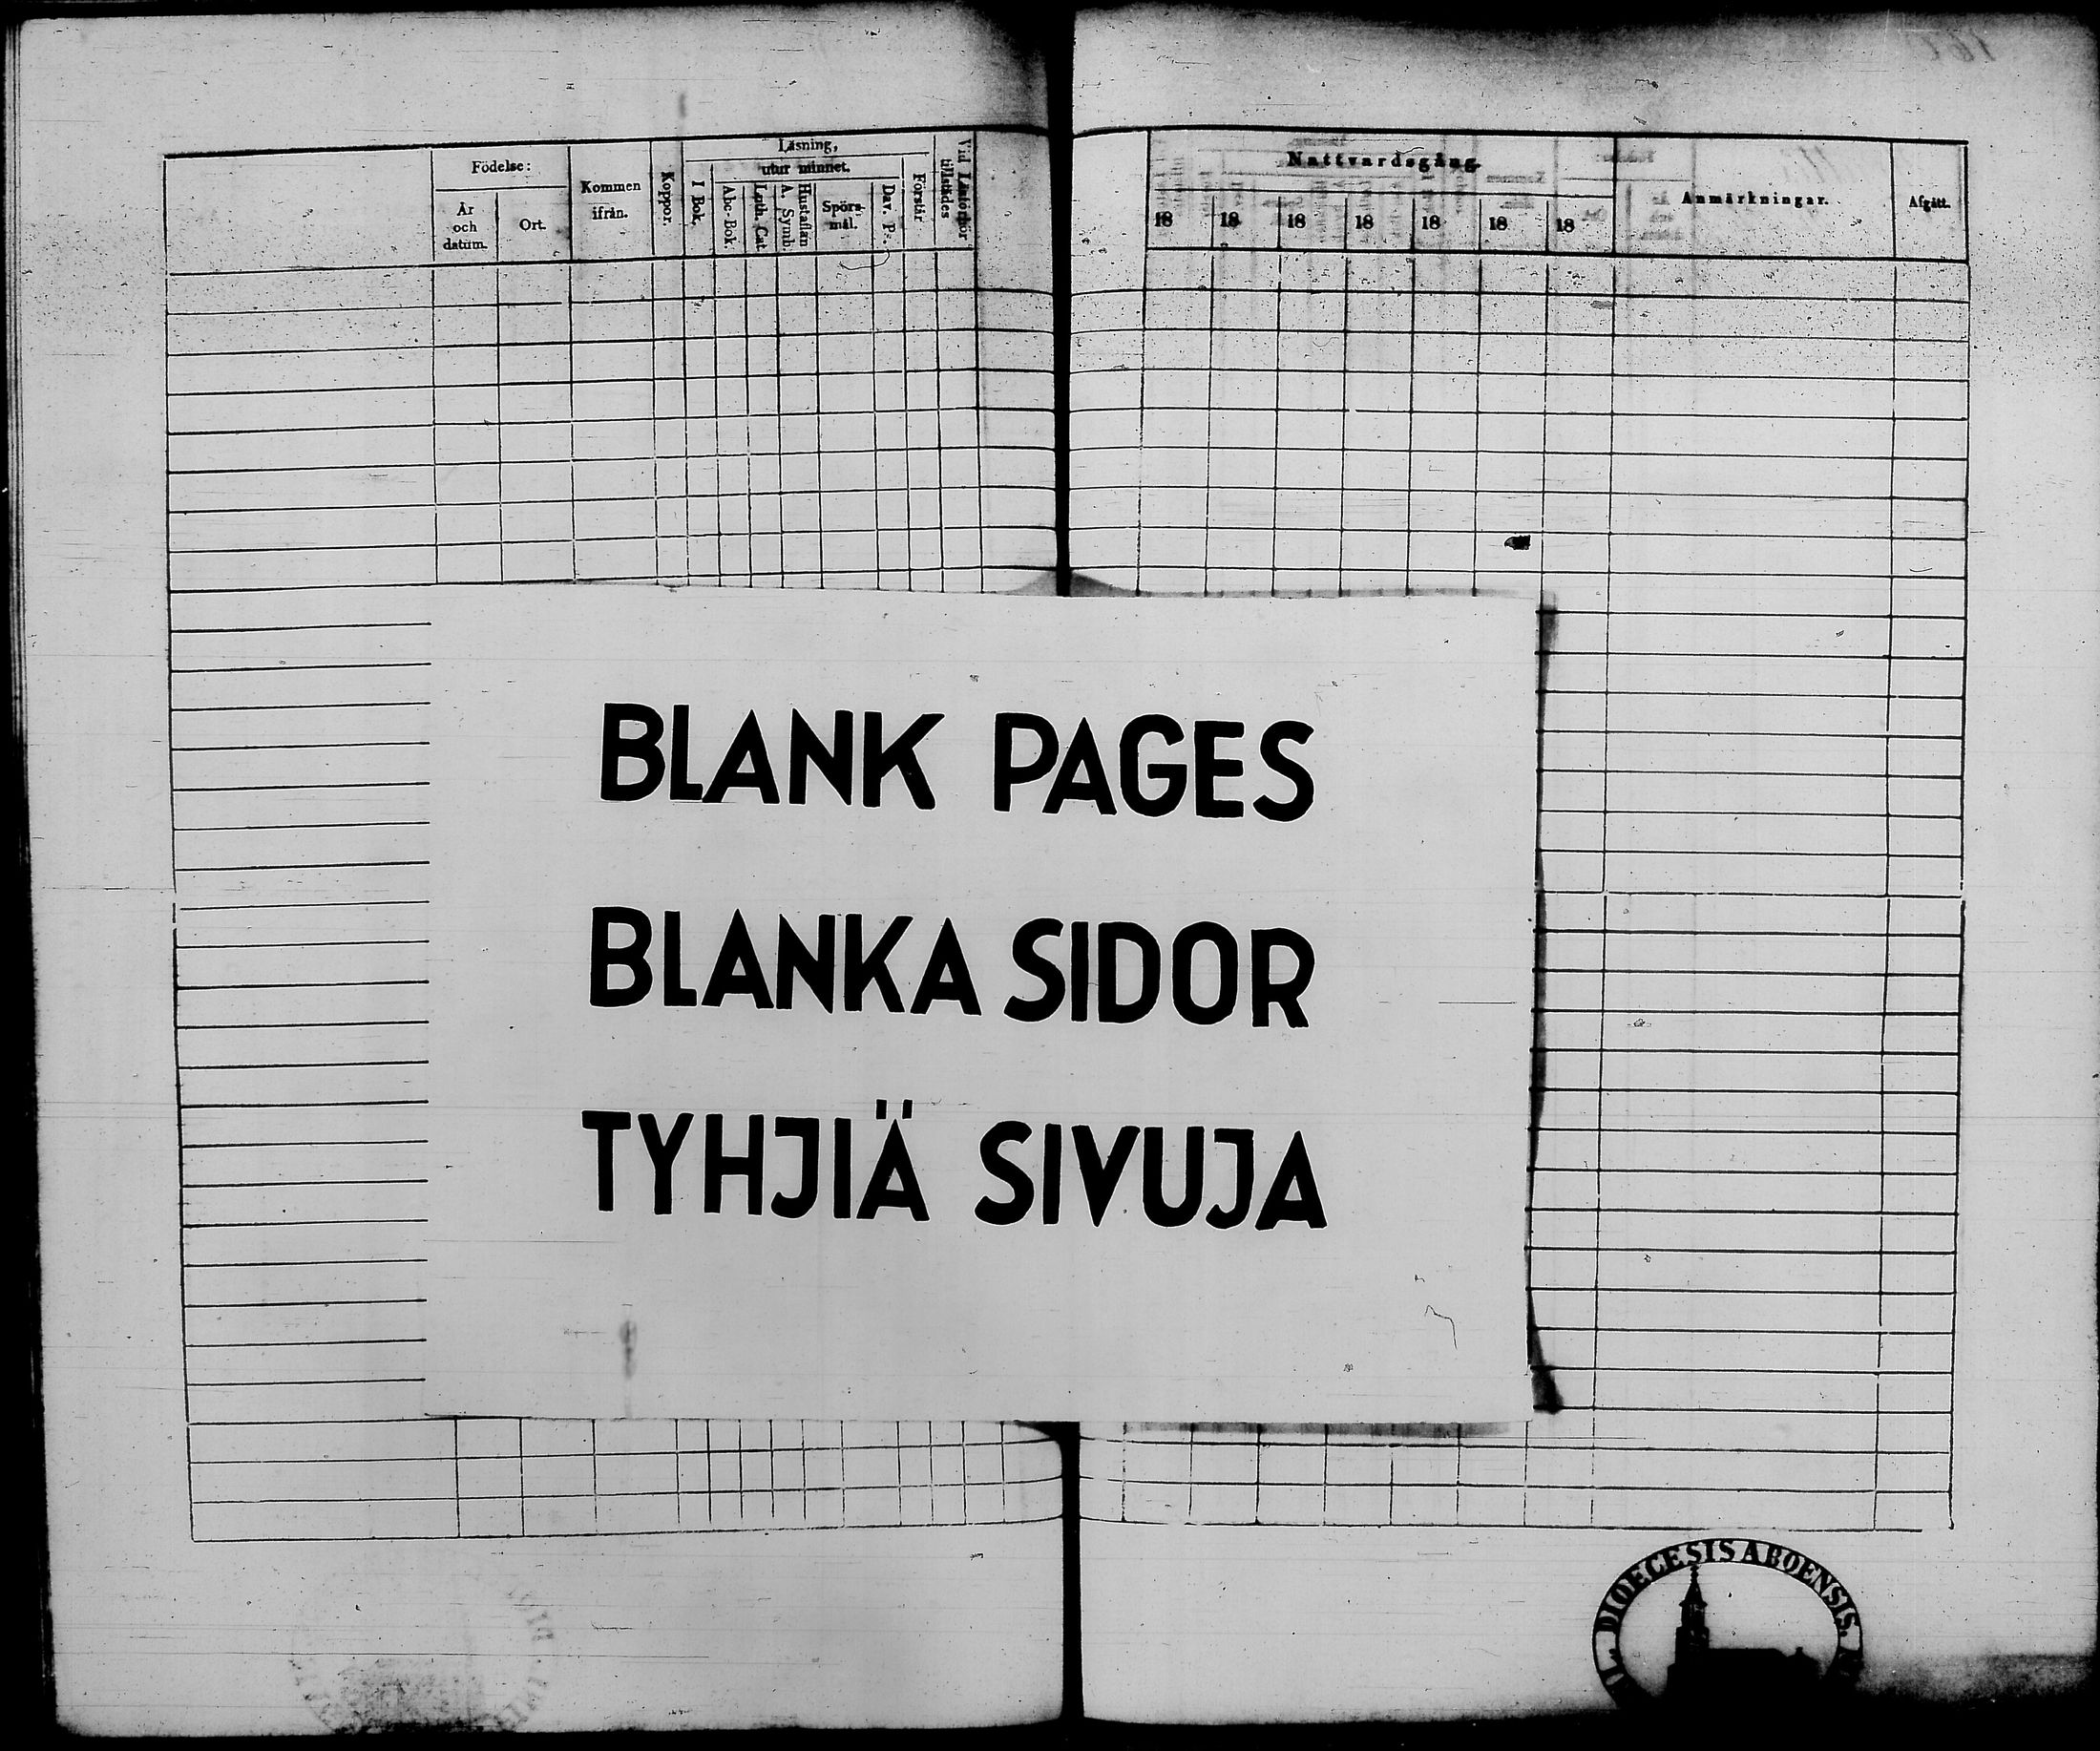 Födelse:
År
och
datum.
Ort.
Kommen
ifrån.
Koppor.
Läsning,
utur minnet.
I Bok.
Abc-Bok.
Luth. Cat.
A. Symb.
Hustaflan
Spörs-
mål.
Dav. Ps.
Förstår
Vid Läsförhör
tillstädes
Nattvardsgång
18 18 18 18 18 18 18
Anmärkningar.
Afgått.
BLANK PAGES
BLANKA SIDOR
TYHJIÄ SIVUJA
DIOECESIS ABOENSIS.